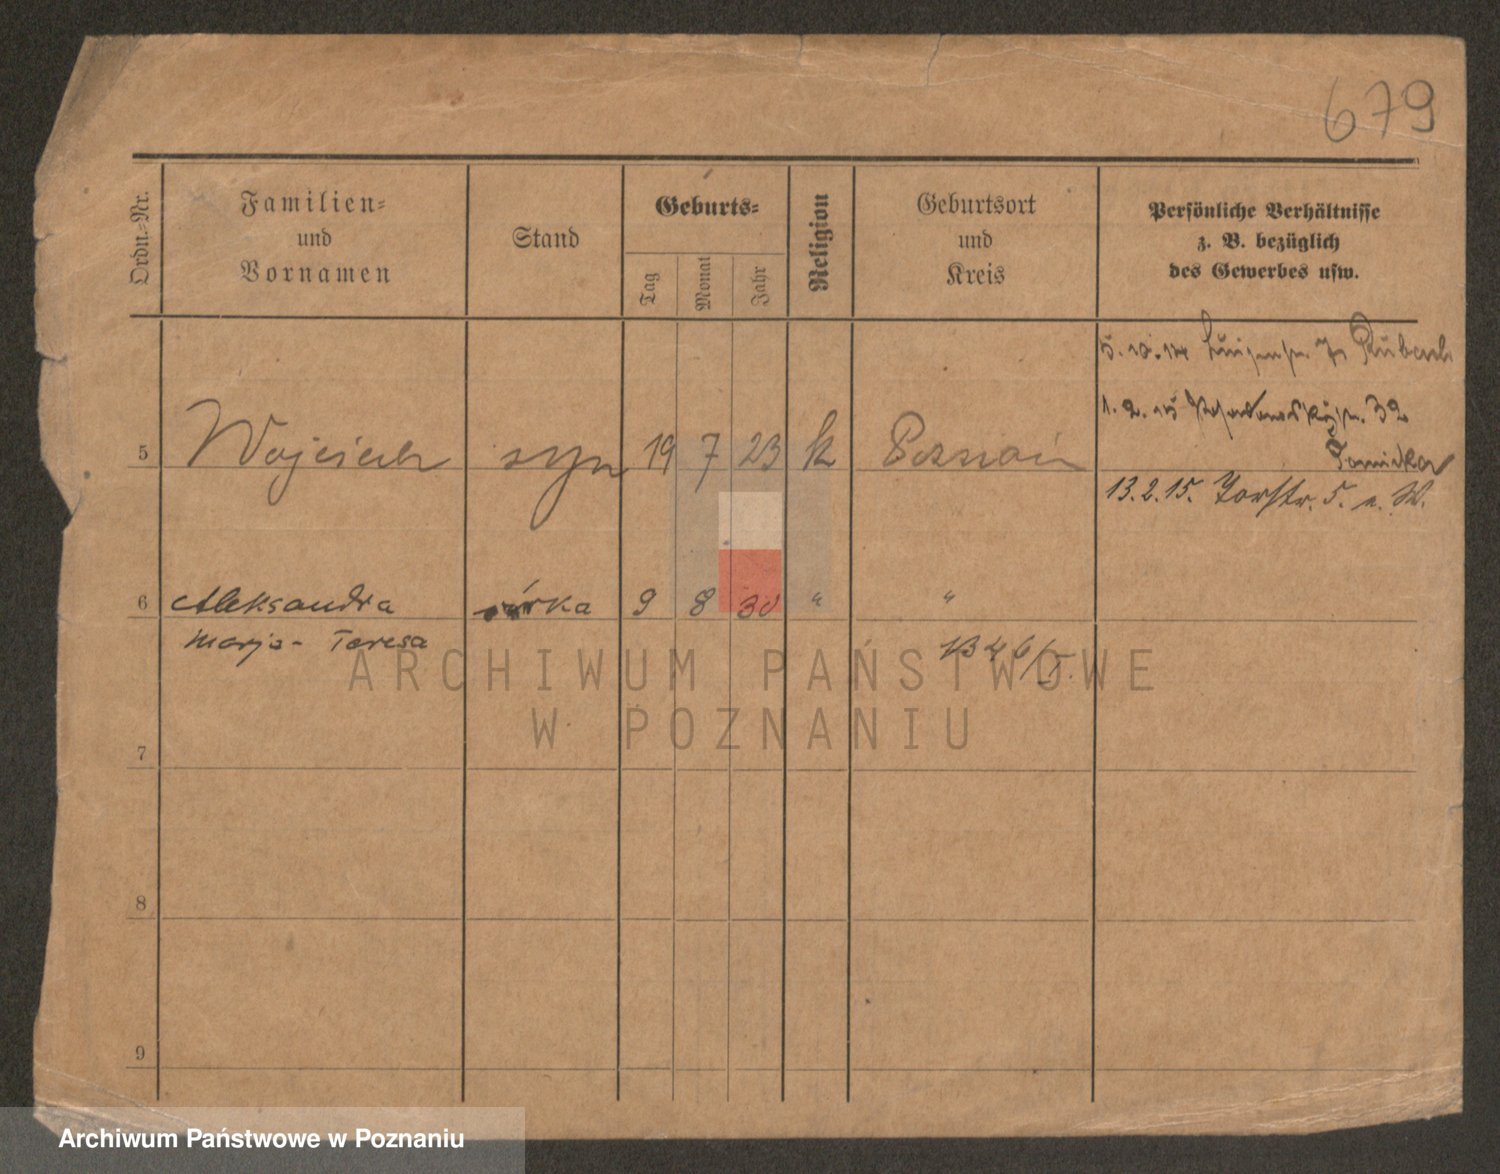 679
Ordn.-Nr.
Familien-
und
Vornamen
Stand
Geburts-
Tag
Monat
Jahr
Religion
Geburtsort
und
Kreis
Persönliche Verhältnisse
z. B. bezüglich
des Gewerbes usw.
5.10.14
1.2.15 32
5 Wojciech syn 19 7 23 k Poznań
13.2.15. Torstr. 5. n. W.
6 Aleksandra córka 9 8 30 " "
Marja- Teresa
1346/I.
ARCHIWUM PAŃSTWOWE
W POZNANIU
7
8
9
Archiwum Państwowe w Poznaniu